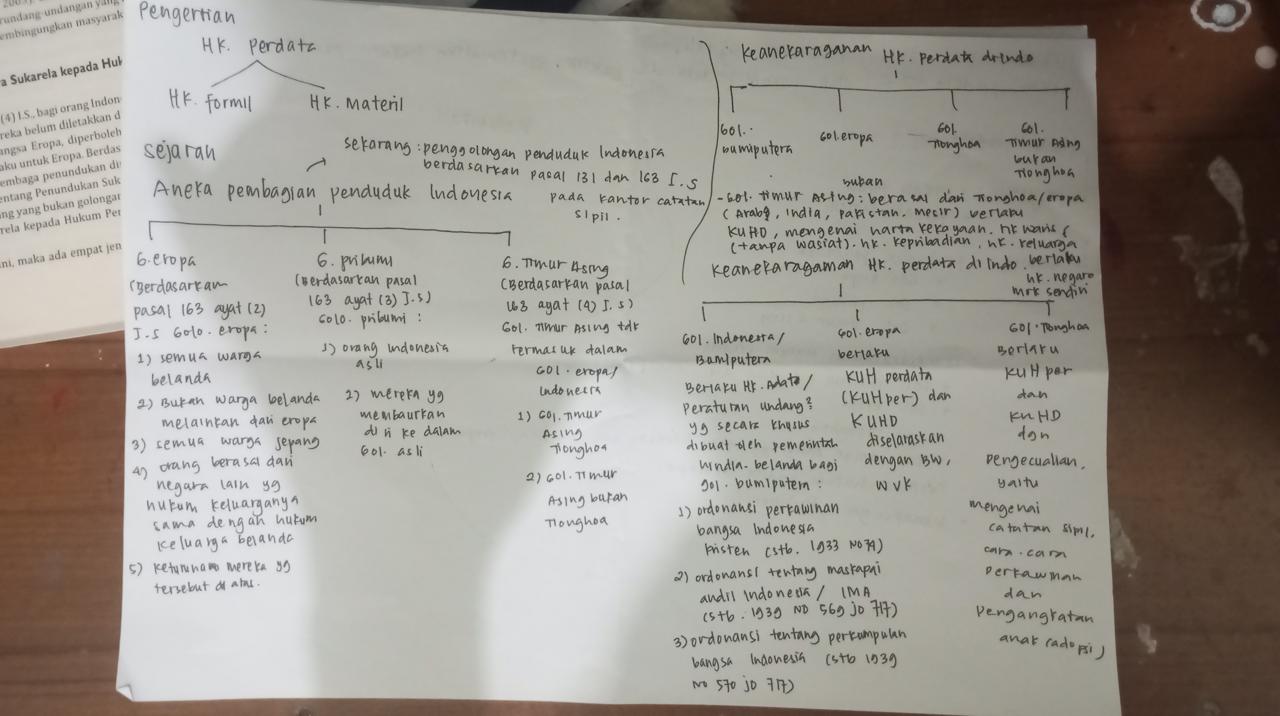 rundang-undangan yang
embingungkan masyarak
a Sukarela kepada Huk
(4) I.S., bagi orang Indon
reka belum diletakkan d
angsa Eropa, diperboleh
aku untuk Eropa. Berdas
embaga penundukan di
entang Penundukan Suk
ng yang bukan golongan
rela kepada Hukum Per
ini, maka ada empat jen
Pengertian
HK. Perdata
HK. formil
HK. Materil
Sejarah
Sekarang : penggolongan penduduk Indonesia
berdasarkan pasal 131 dan 163 I.S
pada kantor catatan
sipil.
Aneka pembagian penduduk Indonesia
G. eropa
(Berdasarkan
pasal 163 ayat (2)
I.S Golo. eropa :
1) semua warga
belanda
2) Bukan warga belanda
melainkan dari eropa
3) semua warga jepang
4) orang berasal dari
negara lain yg
hukum keluarganya
sama dengan hukum
keluarga belanda
5) keturunan mereka yg
tersebut di atas.
G. pribumi
(Berdasarkan pasal
163 ayat (3) I.S)
Golo. pribumi :
1) orang indonesia
asli
2) mereka yg
membaurkan
diri ke dalam
Gol. asli
G. Timur Asing
(Berdasarkan pasal
163 ayat (4) I.S)
Gol. Timur Asing tdk
termasuk dalam
Gol. eropa/
Indonesia
1) Gol. Timur
Asing
Tionghoa
2) Gol. Timur
Asing bukan
Tionghoa
Keanekaraganan HK. Perdata di Indo
Gol.
bumiputera
Gol. eropa
Gol.
Tionghoa
Gol.
Timur Asing
bukan
Tionghoa
bukan
- Gol. Timur Asing : berasal dari Tionghoa/eropa
(Arab, India, Pakistan. Mesir) berlaku
KUHD, mengenai harta kekayaan. hk waris
(tanpa wasiat). hk. kepribadian, hk. keluarga
berlaku
hk. negara
mrk sendiri
Keanekaragaman HK. perdata di Indo
Gol. Indonesia/
Bumiputera
Berlaku HK. Adat /
Peraturan undang²
yg secara khusus
dibuat oleh pemerintah
hindia-belanda bagi
gol. bumiputera :
1) ordonansi perkawinan
bangsa Indonesia
kristen (stb. 1933 No 74)
2) ordonansi tentang maskapai
andil Indonesia / IMA
(stb. 1939 NO 569 jo 717)
3) ordonansi tentang perkumpulan
bangsa Indonesia (stb 1939
No 570 jo 717)
Gol. eropa
berlaku
KUH perdata
(KUHper) dan
KUHD
diselaraskan
dengan BW,
WvK
Gol. Tionghoa
Berlaku
KUH per
dan
KUHD
dgn
pengecualian,
yaitu
mengenai
catatan sipil,
cara-cara
perkawinan
dan
pengangkatan
anak (adopsi)